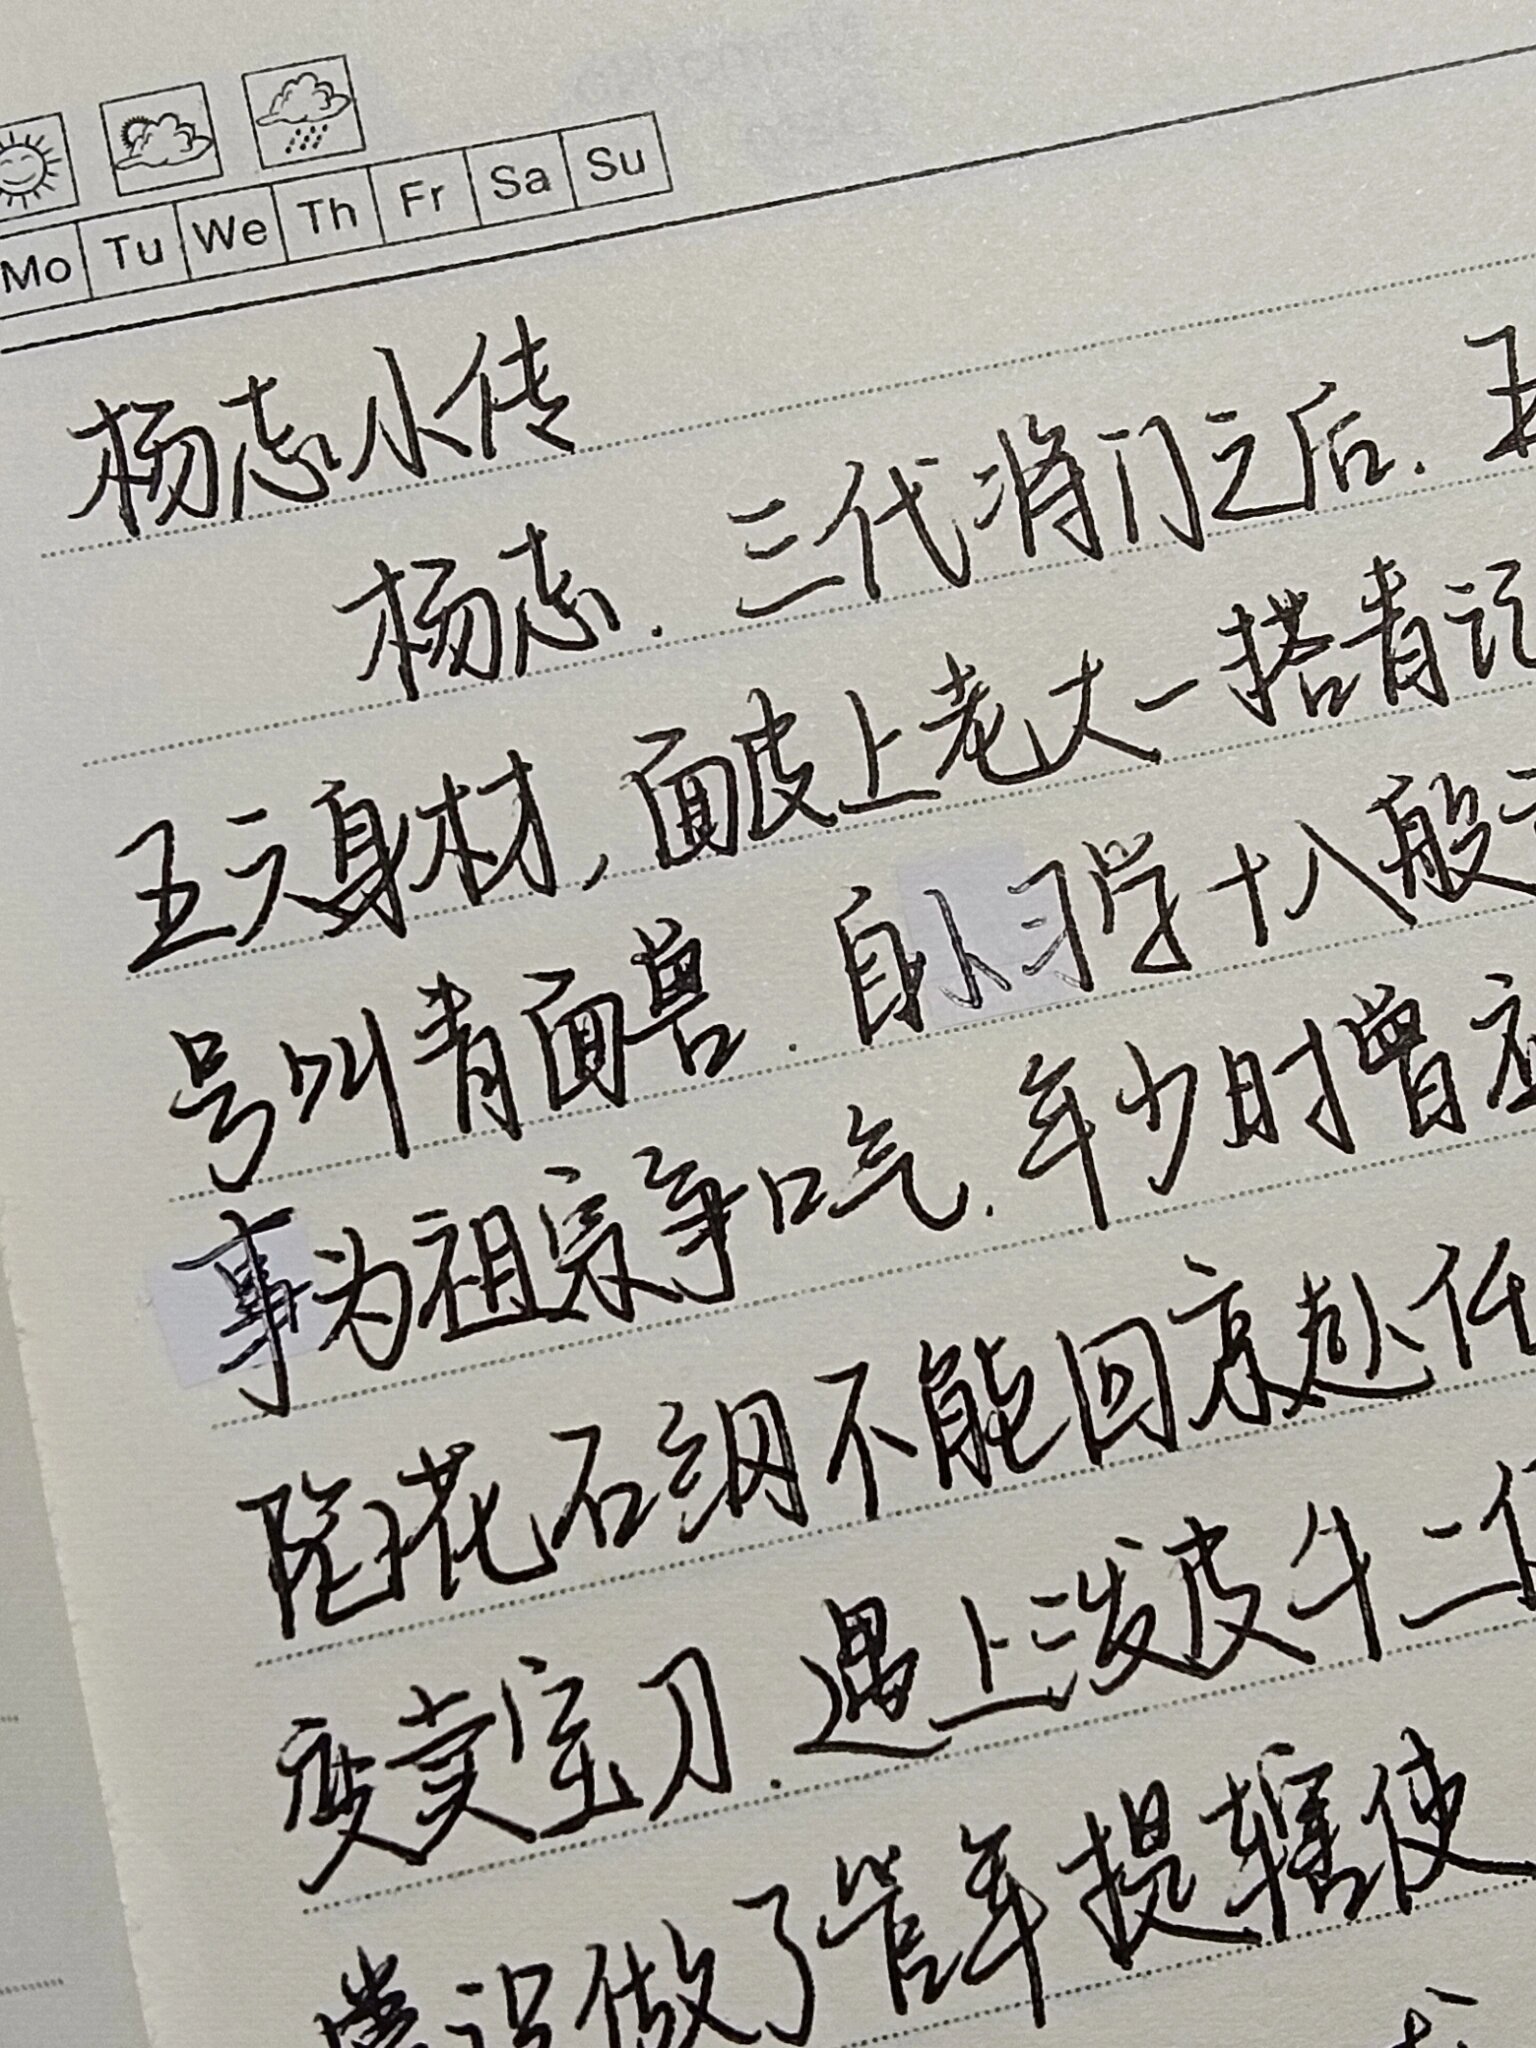 Mo Tu We Th Fr Sa Su
杨志小传
杨志.三代将门之后.五
五六身材,面皮上老大一搭青记
号叫青面兽.自小习学十八般
事为祖宗争口气.年少时曾应
陷花石纲不能回京赴任
变卖宝刀.遇上泼皮牛二
赏识做了管军提辖使